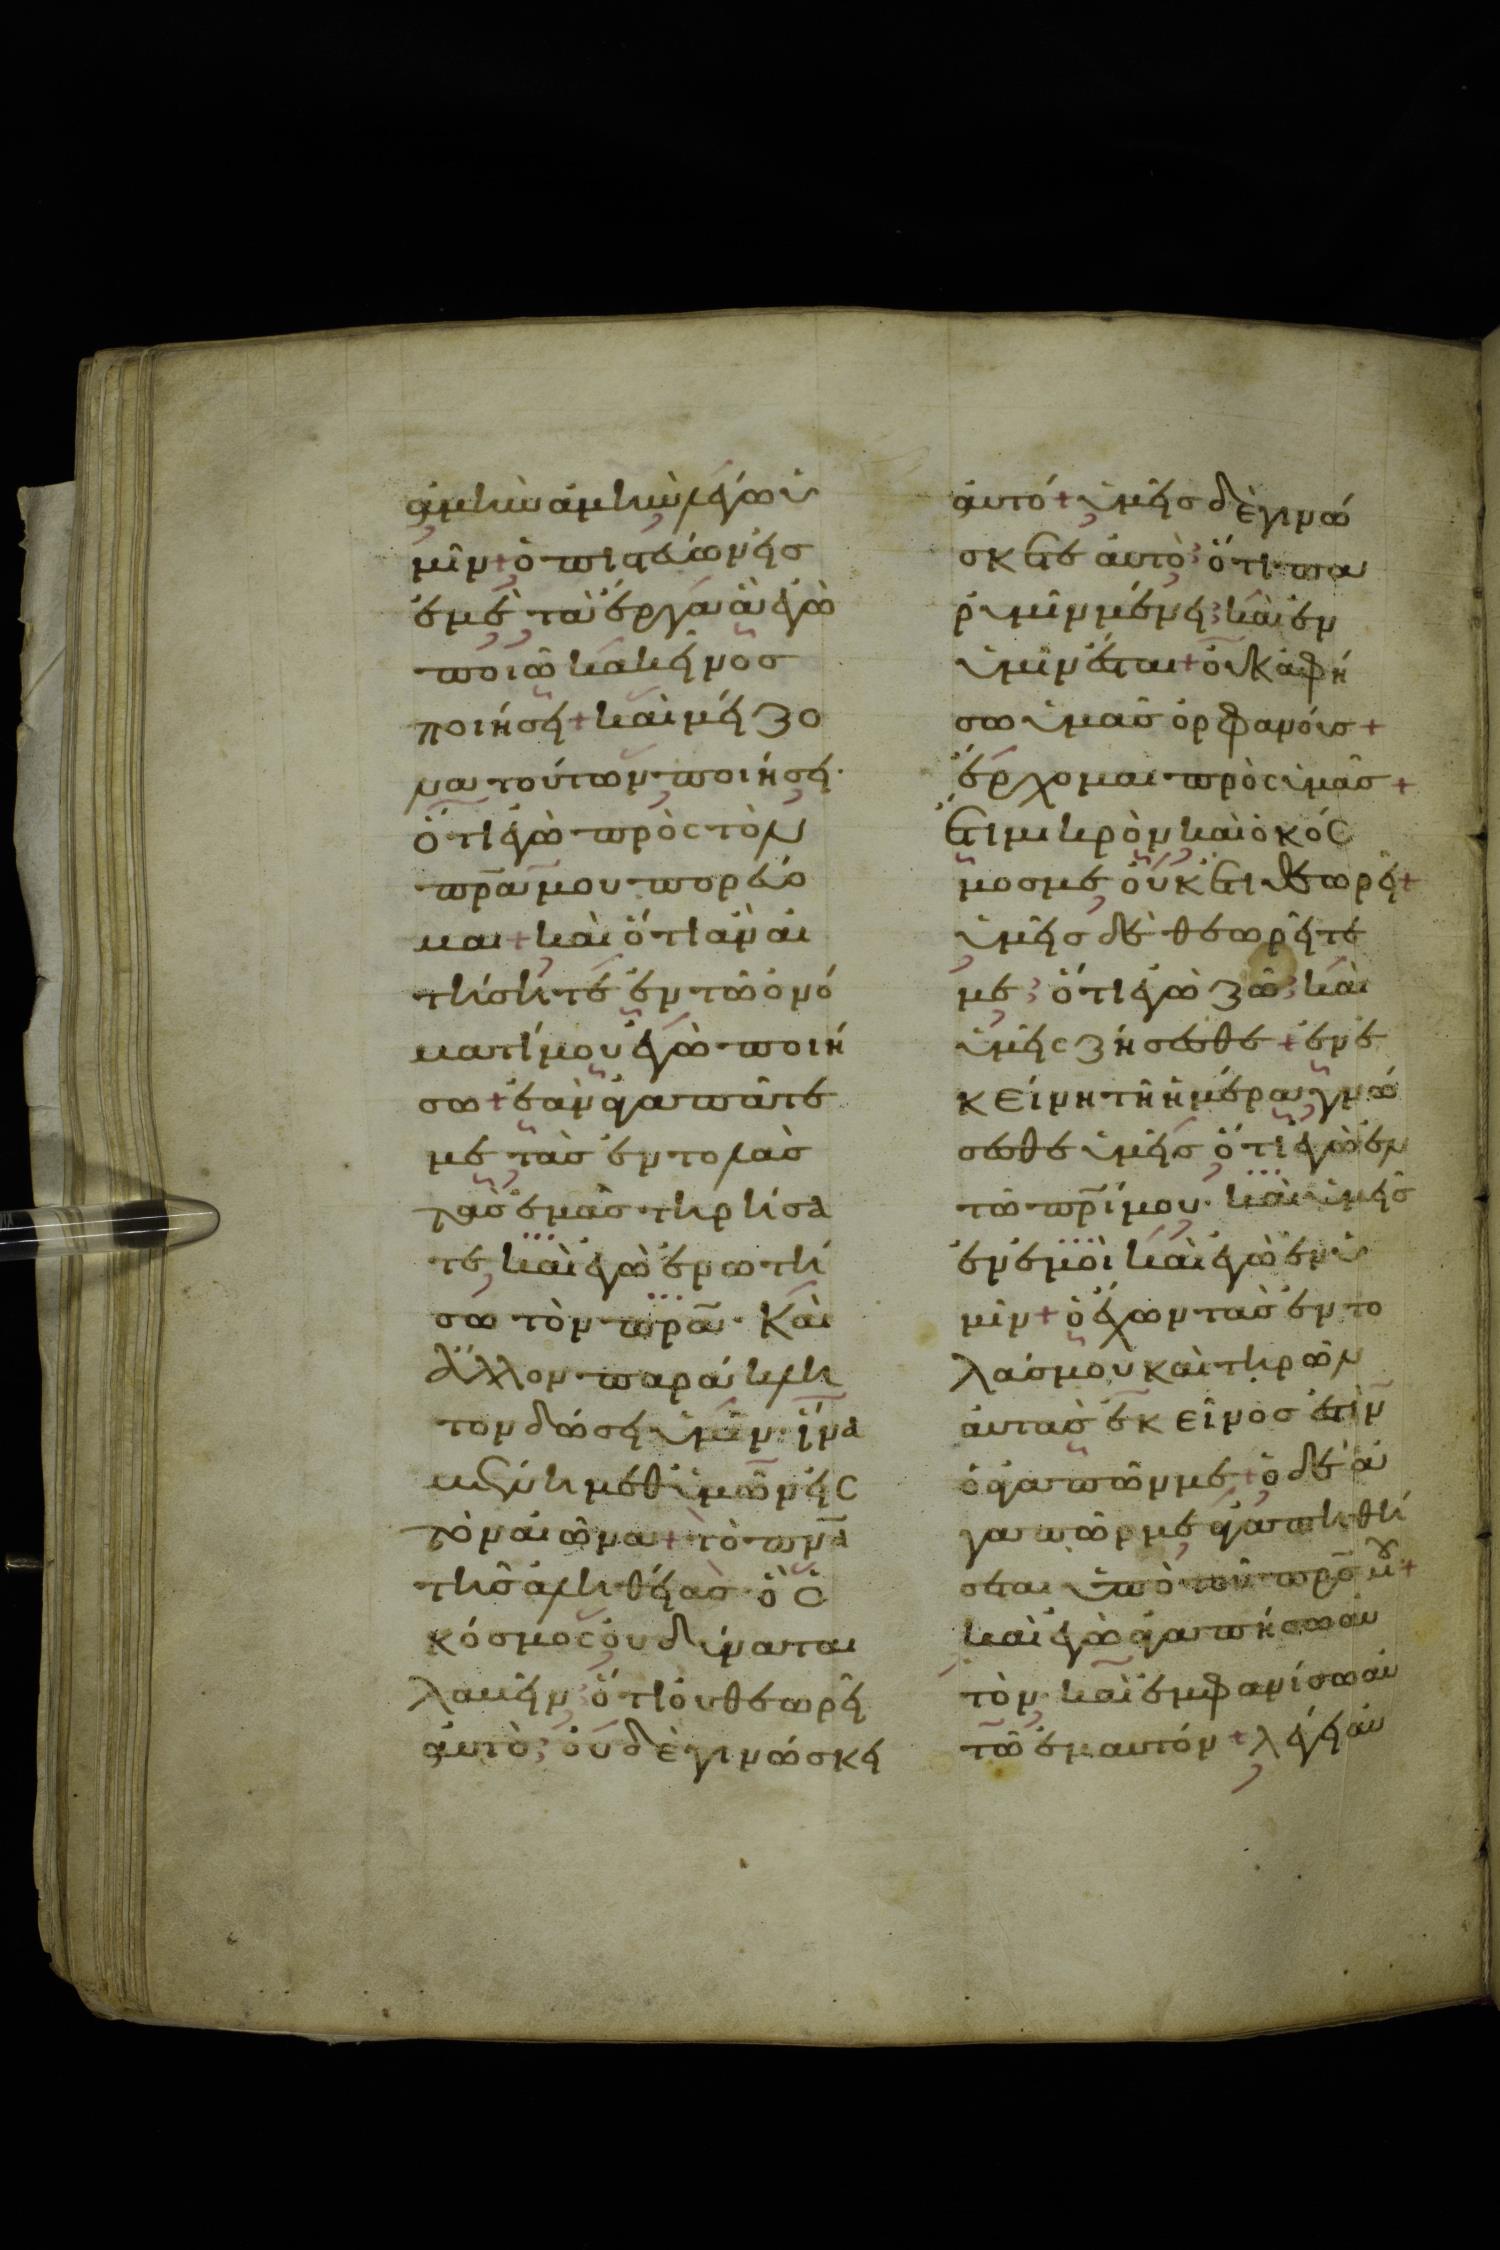 ἀμὴν ἀμὴν λέγω ὑ
μῖν + ὁ πιστεύων εἰς
ἐμὲ τὰ ἔργα ἃ ἐγὼ
ποιῶ κακεῖνος
ποιήσει + καὶ μείζο
να τούτων ποιήσει·
ὅτι ἐγὼ πρὸς τὸν
πρ̅α̅ μου πορεύο
μαι + καὶ ὅτι ἂν αἰ
τήσητε ἐν τῶ ὀνό
ματί μου ἐγὼ ποιή
σω + ἐὰν ἀγαπᾶτέ
με τὰς ἐντολὰς
τὰς ἐμὰς τηρήσα
τε καὶ ἐγὼ ἐρωτή
σω τὸν πρ̅α̅· Καὶ
ἄλλον παράκλη
τον δώσει ὑμῖν· ἵνα
μένη μεθ ὑμῶν εἰς
τὸν αἰῶνα + τὸ πν̅α̅
τῆς ἀληθείας· ὃ ὁ
κόσμος οὐ δύναται
λαβεῖν ὅτι οὐ θεωρεῖ
αὐτὸ οὐδὲ γινώσκει
αὐτό + ὑμεῖς δὲ γινώ
σκετε αὐτὸ ὅτι πα
ρ ὑμῖν μένει καὶ ἐν
ὑμῖν ἔσται + οὐκ ἀφή
σω ὑμᾶς ὀρφανούς +
ἔρχομαι πρὸς ὑμᾶς +
ἔτι μικρὸν καὶ ὁ κόσ
μος με οὐκ ἔτι θεωρεῖ +
ὑμεῖς δὲ θεωρεῖτέ
με ὅτι ἐγὼ ζῶ καὶ
ὑμεῖς ζήσεσθε + ἐν ἐ
κείνη τῆ ἡμέρα γνώ
σεσθε ὑμεῖς ὅτι ἐγὼ ἐν
τῶ πρ̅ί̅ μου· καὶ ὑμεῖς
ἐν ἐμοὶ καὶ ἐγὼ ἐν ὑ
μὶν + ὁ ἔχων τὰς ἐντο
λάς μου καὶ τηρῶν
αὐτὰς ἐκεῖνος ἐστὶν
ὁ ἀγαπῶν με + ὁ δὲ ἀ
γαπῶν με ἀγαπηθή
σεται ὑπὸ τοῦ πρ̅ς̅ μου +
καὶ ἐγὼ ἀγαπήσω αὐ
τὸν· καὶ ἐμφανίσω αὐ
τῶ ἐμαυτόν + λέγει αὐ